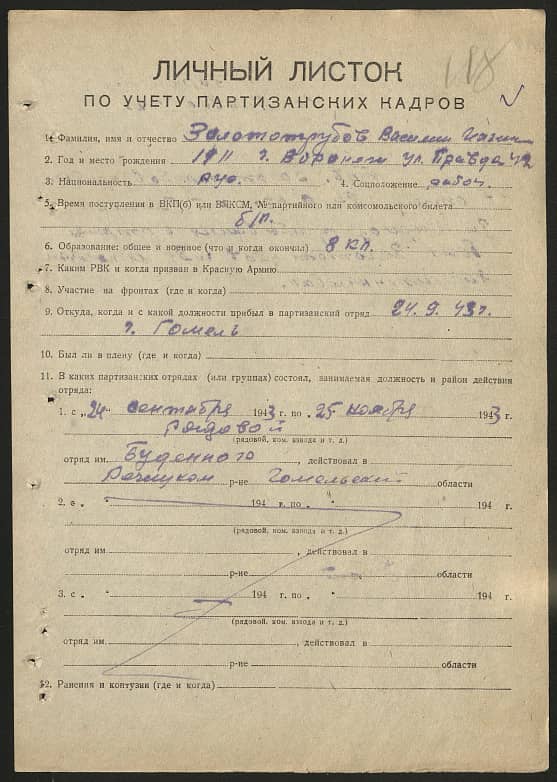 118
ЛИЧНЫЙ ЛИСТОК
ПО УЧЕТУ ПАРТИЗАНСКИХ КАДРОВ
1. Фамилия, имя и отчество Золототрубов Василий
2. Год и место рождения 1911 г. Воронеж ул. Правда 42
3. Национальность рус. 4. Соцположение рабоч.
5. Время поступления в ВКП(б) или ВЛКСМ, № партийного или комсомольского билета
б/п.
6. Образование: общее и военное (что и когда окончил) 8 кл.
7. Каким РВК и когда призван в Красную Армию
8. Участие на фронтах (где и когда)
9. Откуда, когда и с какой должности прибыл в партизанский отряд 24. 9. 43 г.
г. Гомель
10. Был ли в плену (где и когда)
11. В каких партизанских отрядах (или группах) состоял, занимаемая должность и район действия
отряда:
1. с „24 сентября 1943 г. по „25 ноября 1943 г.
Рядовой
(рядовой, ком. взвода и т. д.)
отряд им. Буденного, действовал в
Речицком р-не Гомельский области
2. с „ " 194 г. по „ " 194 г.
(рядовой, ком. взвода и т. д.)
отряд им. , действовал в
р-не области
3. с „ " 194 г. по „ " 194 г.
(рядовой, ком. взвода и т. д.)
отряд им. , действовал в
р-не области
12. Ранения и контузии (где и когда)